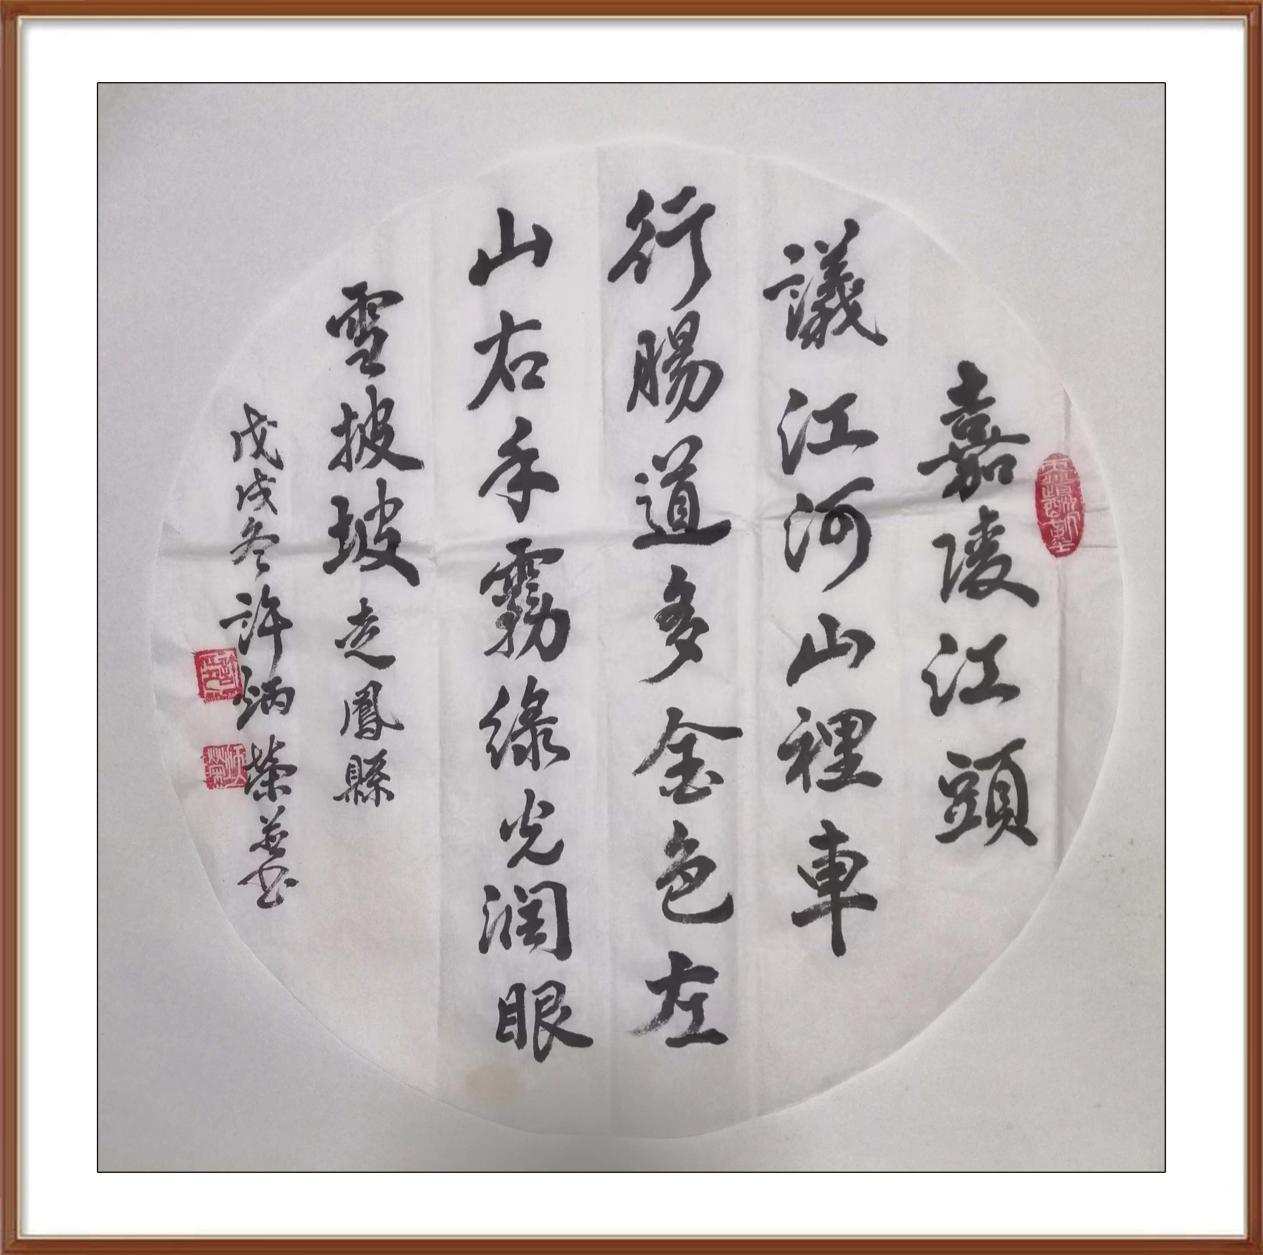 嘉陵江頭
議江河山裡車
行腸道多金色左
山右手霧綠光润眼
雪披坡走鳳縣
戊戌冬許炳榮並书